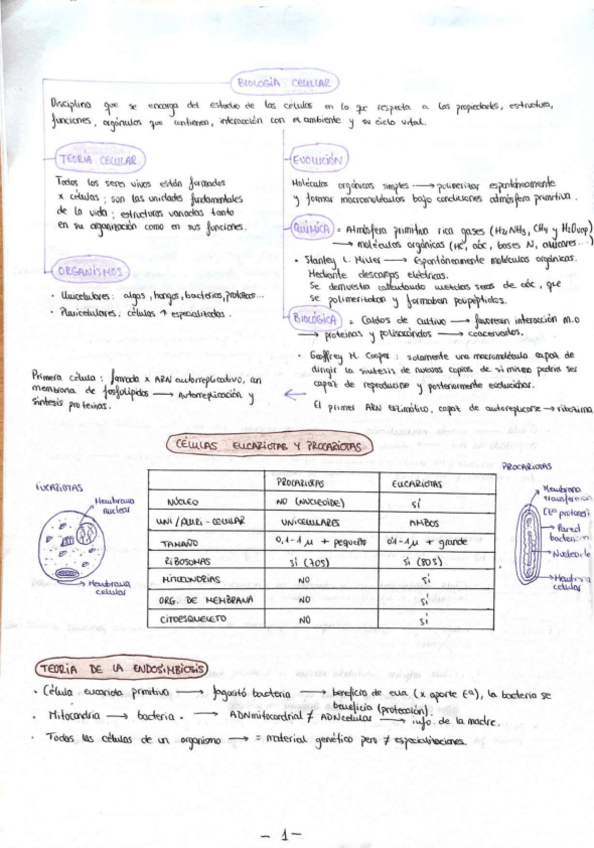 BIOLOGÍA CELULAR
Disciplina que se encarga del estudio de las células en lo qe respecta a las propiedades, estructura,
funciones, orgánulos que contienen, interacción con el ambiente y su ciclo vital.
TEORÍA CELULAR
Todos los seres vivos están formados
x células; son las unidades fundamentales
de la vida; estructuras variadas tanto
en su organización como en sus funciones.
ORGANISMOS
· Unicelulares: algas, hongos, bacterias, protozoos...
· Pluricelulares: células ↑ especializadas.
EVOLUCIÓN
Moléculas orgánicas simples → polimerizar espontáneamente
y formar macromoléculas bajo condiciones atmósfera primitiva.
QUÍMICA = Atmósfera primitiva rica gases (H2NH3, CH4 y H2Ovap)
→ moléculas orgánicas (HC, aác, bases N, azúcares...)
· Stanley L. Miller → Espontáneamente moléculas orgánicas.
Mediante descargas eléctricas.
Se demuestra calentando mezclas secas de aác, que
se polimerizaban y formaban polipéptidos.
BIOLÓGICA = Caldos de cultivo → favorecen interacción m.o
→ proteínas y polisacáridos → coacervados.
· Geoffrey M. Cooper: solamente una macromolécula capaz de
dirigir la síntesis de nuevas copias de si misma podría ser
capaz de reproducirse y posteriormente evolucionar.
El primer ARN enzimático, capaz de autoreplicarse → ribozima
Primera célula: formada x ARN autorreplicativo, en
membrana de fosfolípidos → Autorreplicación y
síntesis proteínas.
←
CÉLULAS EUCARIOTAS Y PROCARIOTAS
EUCARIOTAS
Membrana
nuclear
Membrana
celular
PROCARIOTAS EUCARIOTAS
NÚCLEO NO (NUCLEOIDE) SÍ
UNI/PLURI-CELULAR UNICELULARES AMBOS
TAMAÑO 0,1-1 μ + pequeño 0,1-1 μ + grande
RIBOSOMAS SÍ (70S) SÍ (80S)
MITOCONDRIAS NO SÍ
ORG. DE MEMBRANA NO SÍ
CITOESQUELETO NO SÍ
PROCARIOTAS
Membrana
Pared
Membrana
celular
TEORÍA DE LA ENDOSIMBIOSIS
· Célula eucariota primitiva → fagocitó bacteria → beneficio de eua (x aporte Eª), la bacteria se
beneficia (protección).
· Mitocondria → bacteria. → ADNmitocondrial ≠ ADNcelular → info. de la madre.
· Todas las células de un organismo → = material genético pero ≠ especializaciones.
- 1 -